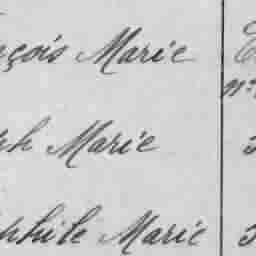 nçois Marie
ph Marie
ophile Marie